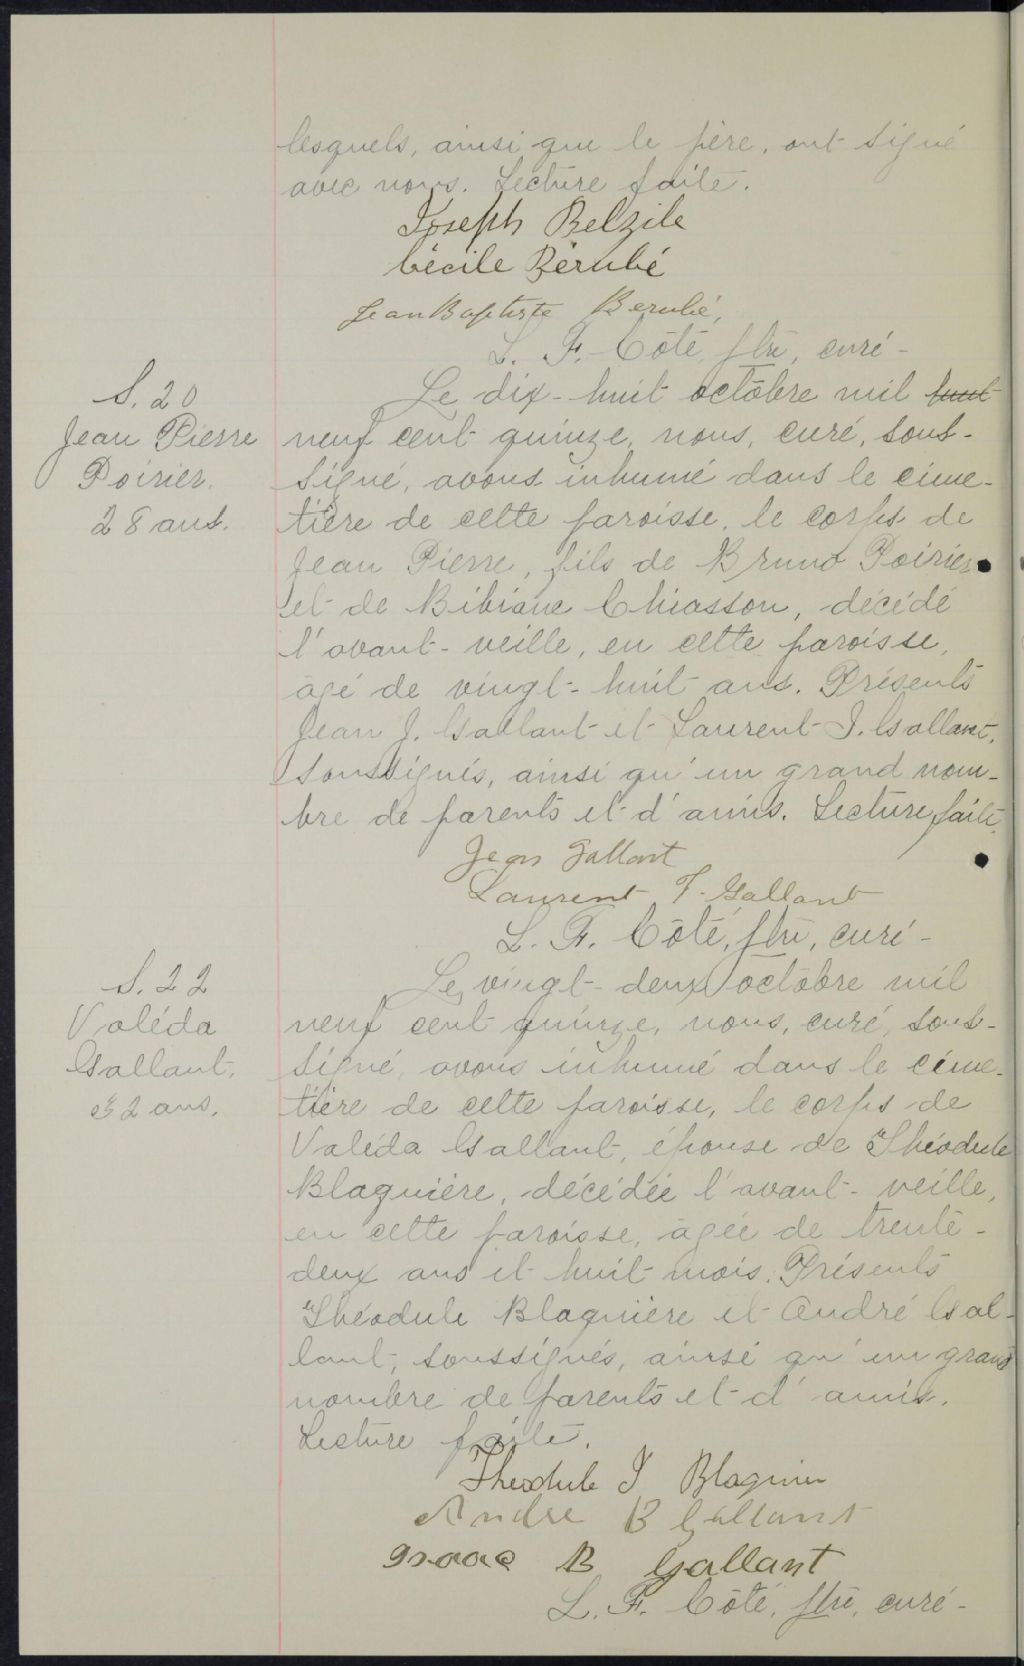 lesquels, ainsi que le père, ont signé
avec nous. Lecture faite.
Joseph Belzile
Cécile Bérubé
Jean Baptiste Berubé,
L. F. Côté, ptre, curé -
S. 20
Jean Pierre
Poirier.
28 ans.
Le dix-huit octobre mil huit
neuf cent quinze, nous, curé, sous-
signé, avons inhumé dans le cime-
tière de cette paroisse, le corps de
Jean Pierre, fils de Bruno Poirier
et de Bibiane Chiasson, décédé
l'avant-veille, en cette paroisse,
âgé de vingt-huit ans. Présents
Jean J. Gallant et Laurent J. Gallant,
soussignés, ainsi qu'un grand nom-
bre de parents et d'amis. Lecture faite.
Jean Gallant
Laurent J. Gallant
L. F. Côté, ptre, curé -
S. 22
Valéda
Gallant.
32 ans.
Le vingt-deux octobre mil
neuf cent quinze, nous, curé, sous-
signé, avons inhumé dans le cime-
tière de cette paroisse, le corps de
Valéda Gallant, épouse de Théodule
Blaquière, décédée l'avant-veille,
en cette paroisse, âgée de trente-
deux ans et huit mois. Présents
Théodule Blaquière et André Gal-
lant, soussignés, ainsi qu'un grand
nombre de parents et d'amis.
Lecture faite.
Theodule J Blaquier
Andre B Gallant
Isaac B Gallant
L. F. Côté, ptre, curé -